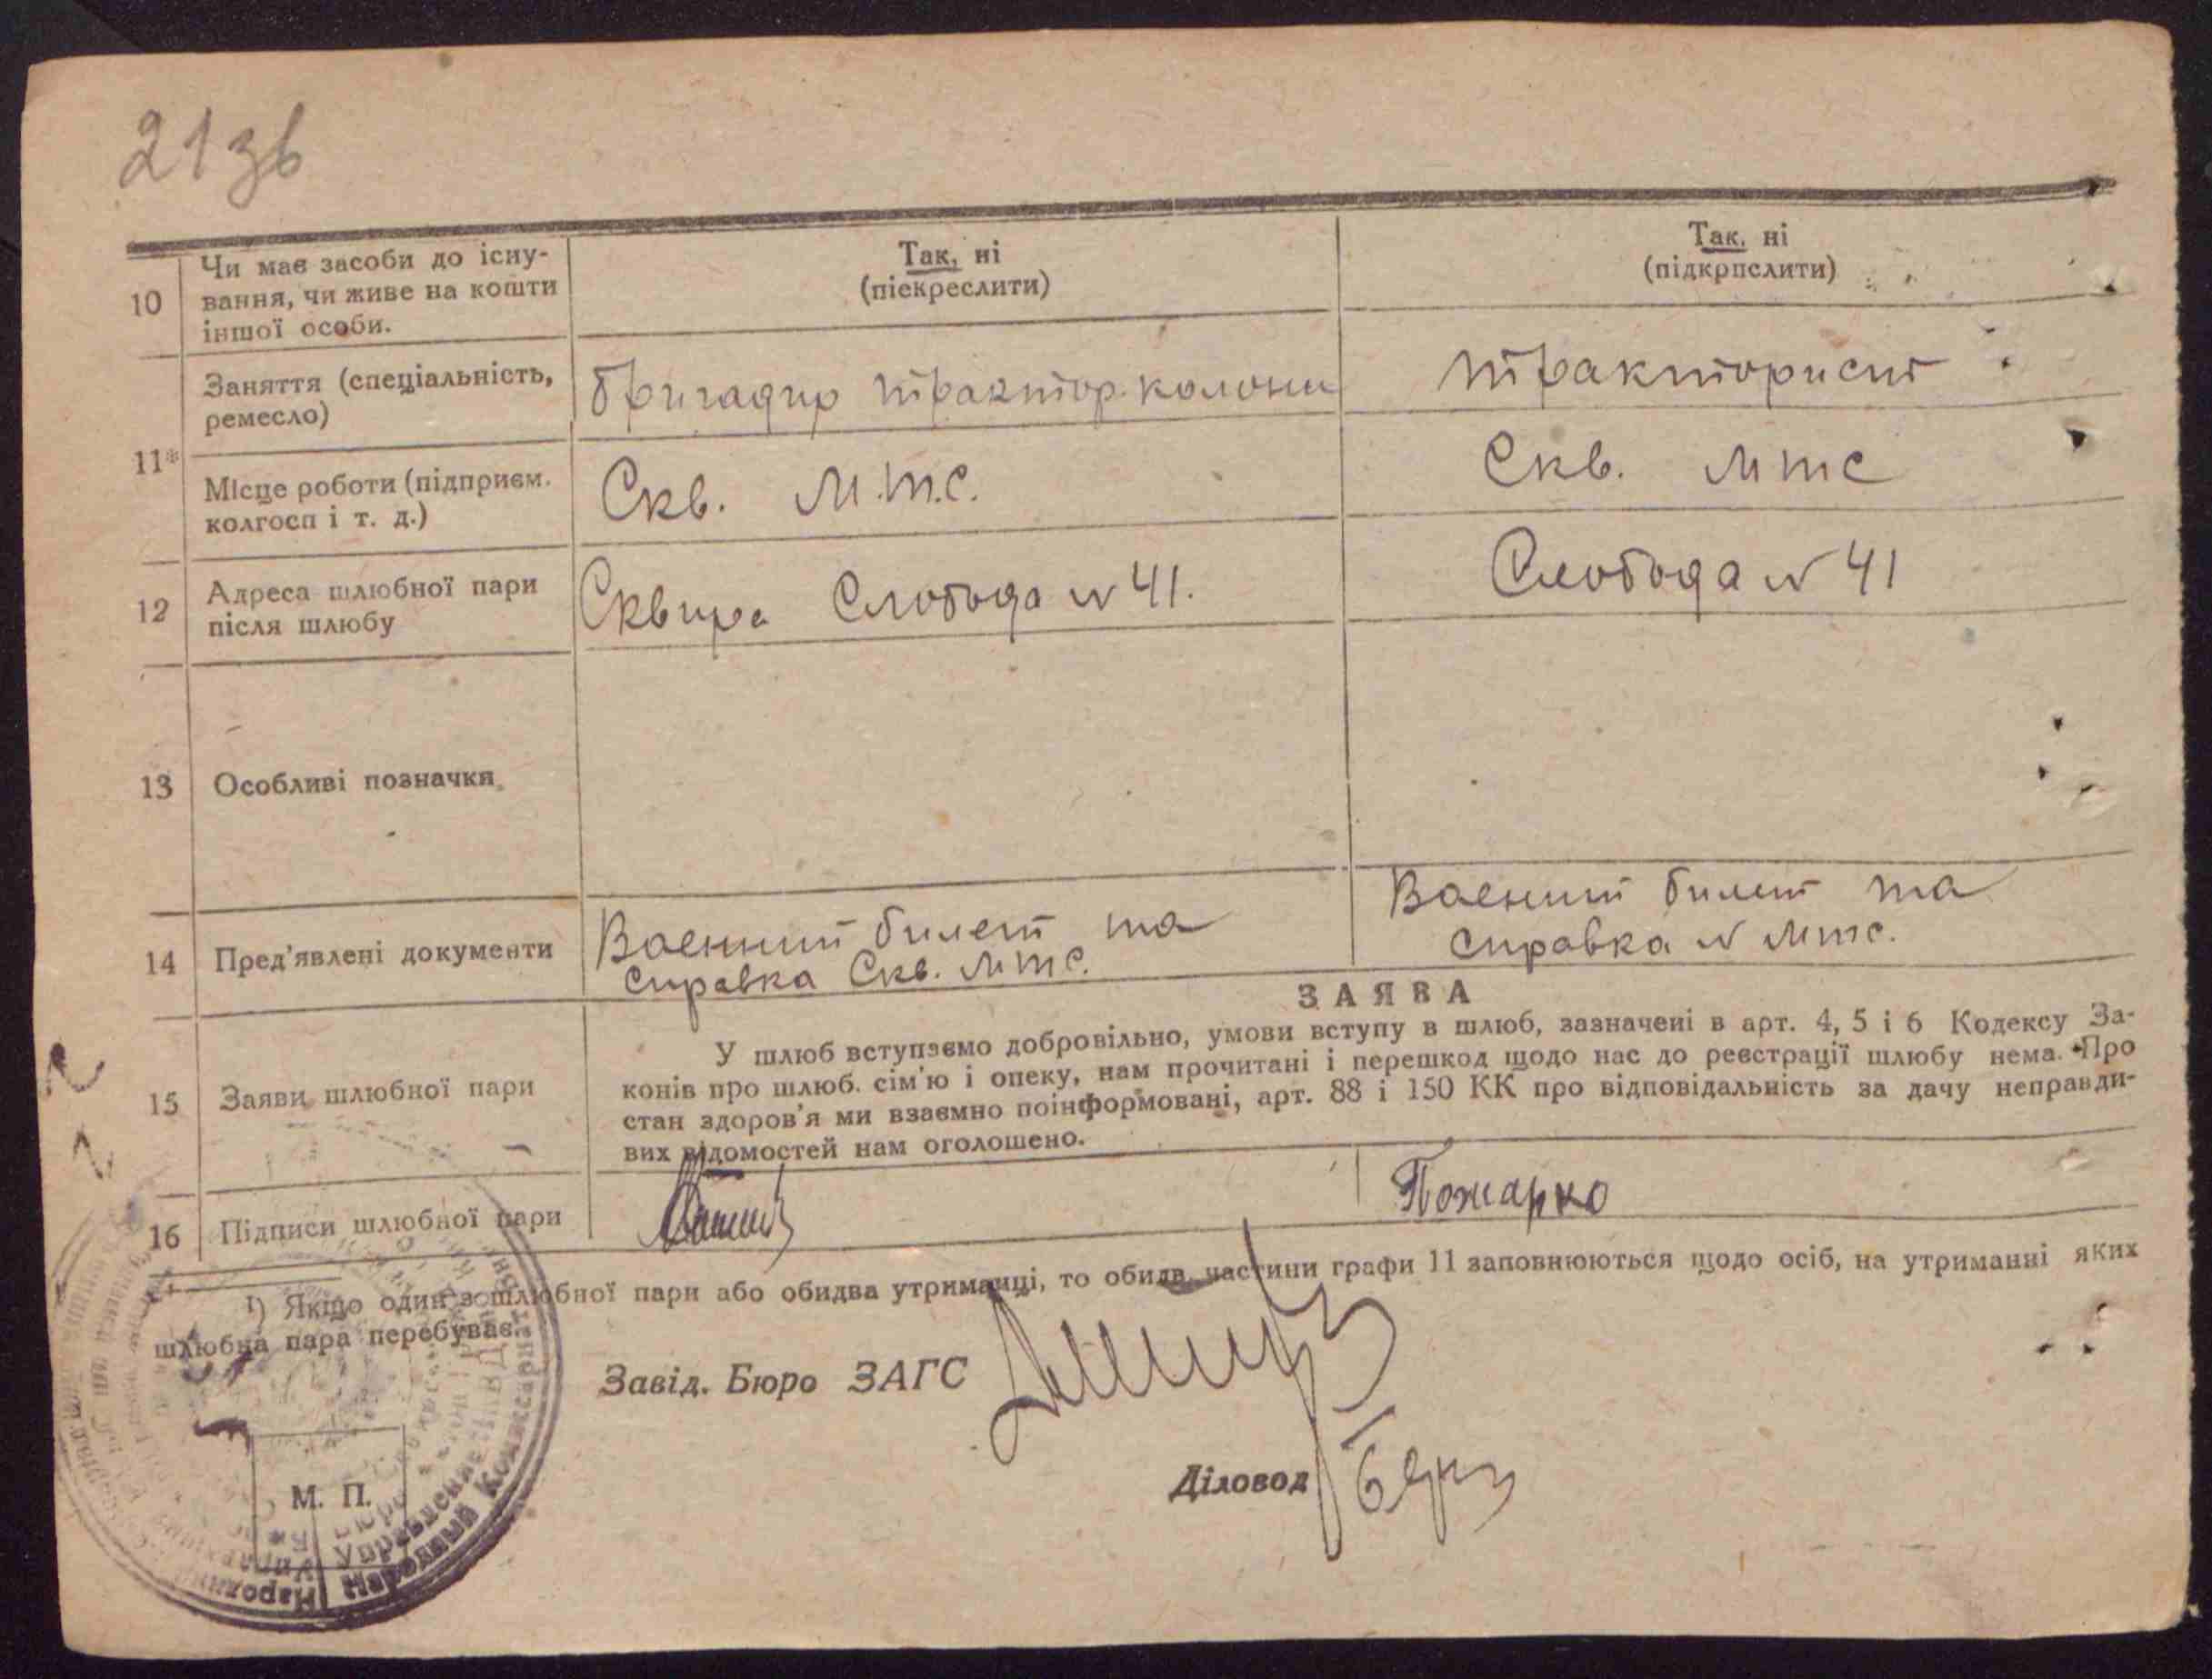 21 зв
10 Чи має засоби до існу-
вання, чи живе на кошти
іншої особи.
Так, ні
(піекреслити)
Так, ні
(підкрпслити)
11* Заняття (спеціальність,
ремесло)
Бригадир трактор. колони
тракторист
Місце роботи (підприєм.
колгосп і т. д.)
Скв. М.т.с.
Скв. МТС
12 Адреса шлюбної пари
після шлюбу
Сквира Слобода N 41.
Слобода N 41
13 Особливі позначки
14 Пред'явлені документи
Военний билет та
справка Скв. МТС.
Воений билет та
справка N МТС.
15 Заяви шлюбної пари
ЗАЯВА
У шлюб вступаємо добровільно, умови вступу в шлюб, зазначені в арт. 4, 5 і 6 Кодексу За-
конів про шлюб. сім'ю і опеку, нам прочитані і перешкод щодо нас до реєстрації шлюбу нема. Про
стан здоров'я ми взаємно поінформовані, арт. 88 і 150 КК про відповідальність за дачу неправди-
вих відомостей нам оголошено.
16 Підписи шлюбної пари
Пожарко
¹) Якщо один з шлюбної пари або обидва утриманці, то обидв частини графи 11 заповнюються щодо осіб, на утриманні яких
шлюбна пара перебуває.
Завід. Бюро ЗАГС
Діловод
М. П.
Народный Комиссариат
Управление